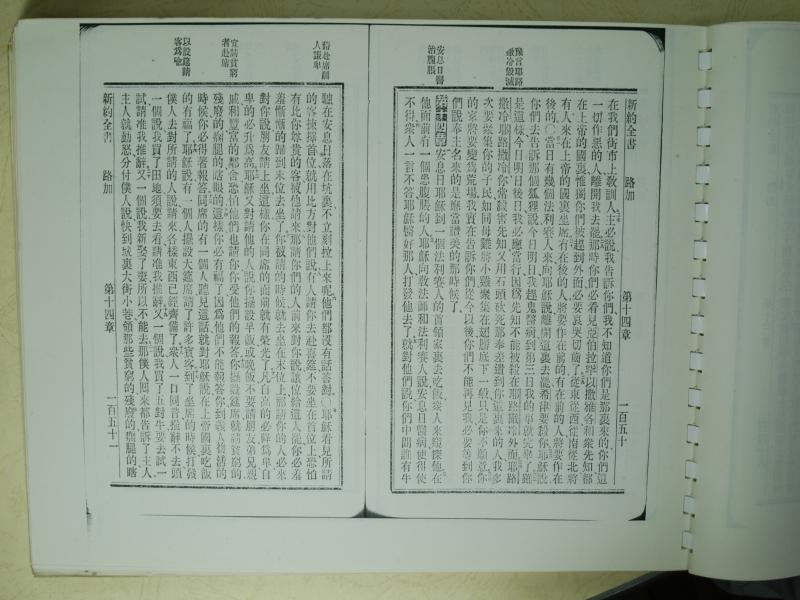 預言耶路
撒冷毀滅
安息日醫
治臌脹
新約全書 路加 第十四章 一百五十
在我們街市上敎訓人主必說我吿訴你們我不知道你們是那裏來的你們這
一切作惡的人離開我去罷那時你們必看見亞伯拉罕以撒雅各和衆先知都
在上帝的國裏惟獨你們被趕到外面必要哀哭切齒了從東從西從南從北將
有人來在上帝的國裏坐席有在後的人將要作在前的有在前的人將要作在
後的〇當日有幾個法利賽人來向耶穌說離開這裏去罷希律要殺你耶穌說
你們去吿訴那個狐狸說今日明日我趕鬼醫病到第三日我的事就完畢了雖
是這樣今日明日後日我必應當行因爲先知不能被殺在耶路撒冷外面耶路
撒冷耶路撒冷你常殺害先知又用石頭砍死那奉差遣到你這裏來的人我多
次要聚集你的子民如同母雞將小雞聚集在翅膀底下一般只是你不願意你
的家將要變爲荒場我實在吿訴你們從今以後你們不能再見我必要等到你
們說奉主名來的是應當讚美的那時候了
第十四章安息日耶穌到一個法利賽人的首領家裏去吃飯衆人來窺探他在
他面前有一個患臌脹的人耶穌向敎法師和法利賽人說安息日醫病使得使
不得衆人一言不答耶穌醫好那人打發他去了就對他們說你們中間誰有牛
勸赴席訓
人謙卑
宜請貧窮
者赴席
以設筵請
客爲喩
驢在安息日落在坑裏不立刻拉上來呢他們都沒有話答對〇耶穌看見所請
的客揀擇首位就用比方對他們說有人請你去赴喜筵不要坐在首位上恐怕
有比你尊貴的客被他請來那請你們的人前來對你說讓位給這人罷你必羞
羞慚慚的歸到末位去坐了你被請的時候就去坐在末位上那請你的人必來
對你說朋友請上坐這樣你在同席的面前就有榮光了凡自高的必降爲卑自
卑的必升爲高耶穌又對請他的人說你擺設早飯或晚飯不要請朋友弟兄親
戚和豐富的鄰舍恐怕他們也請你你受他們的報答你擺設筵席就請貧窮的
殘廢的瘸腿的瞎眼的這樣你必有福了因爲他們不能報答你到義人復活的
時候你必得著報答同席的有一個人聽見這話就對耶穌說在上帝國裏吃飯
的有福了耶穌說有一個人擺設大筵席請了許多賓客到了坐席的時候打發
僕人去對所請的人說請來各樣東西已經齊備了衆人一口同音推辭不去頭
一個說我買了田地須要去看請准我推辭又一個說我買了五對牛要去試一
試請准我推辭又一個說我新娶了妻所以不能去那僕人回來都吿訴了主人
主人就動怒分付僕人說快到城裏大街小巷領那些貧窮的殘廢的瘸腿的瞎
新約全書 路加 第十四章 一百五十一